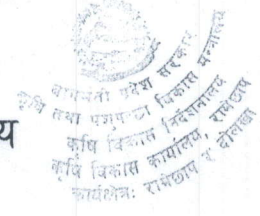 बागमती प्रदेश सरकार
कृषि तथा पशुपन्छी विकास मन्त्रालय
कृषि विकास निर्देशनालय
कृषि विकास कार्यालय, रामेछाप
कार्यक्षेत्र: रामेछाप र दोलखा
य